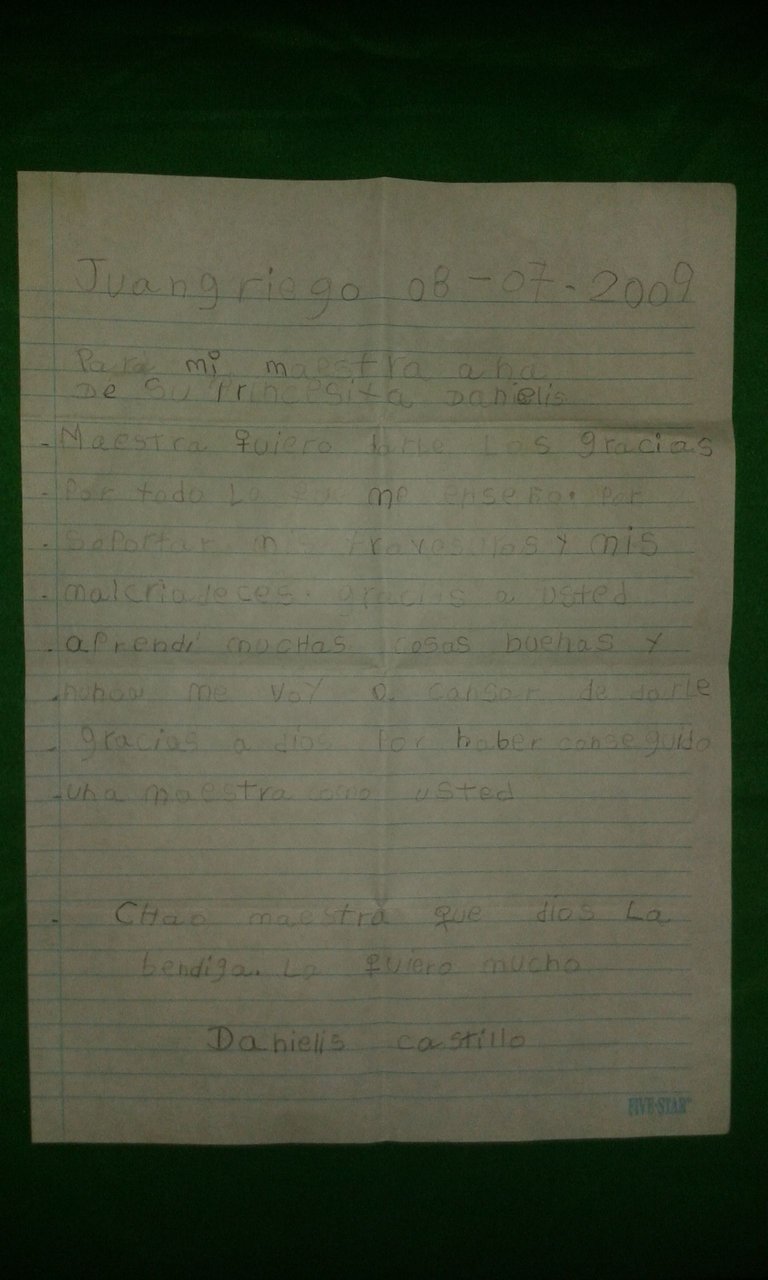 Juangriego 08-07-2009
Para mi maestra ana
De Su Princesita Danielis
- Maestra quiero darle Las gracias
- Por todo Lo qu me enseño. Por
- Soportar mis travesuras y mis
- malcriadeces. gracias a usted
- aprendi mucHas cosas buenas y
- nunca me voy a cansar de darle
- gracias a dios Por haber conseguido
- una maestra como usted
- CHao maestra que dios La
bendiga. La quiero mucho
Danielis castillo
FIVE STAR